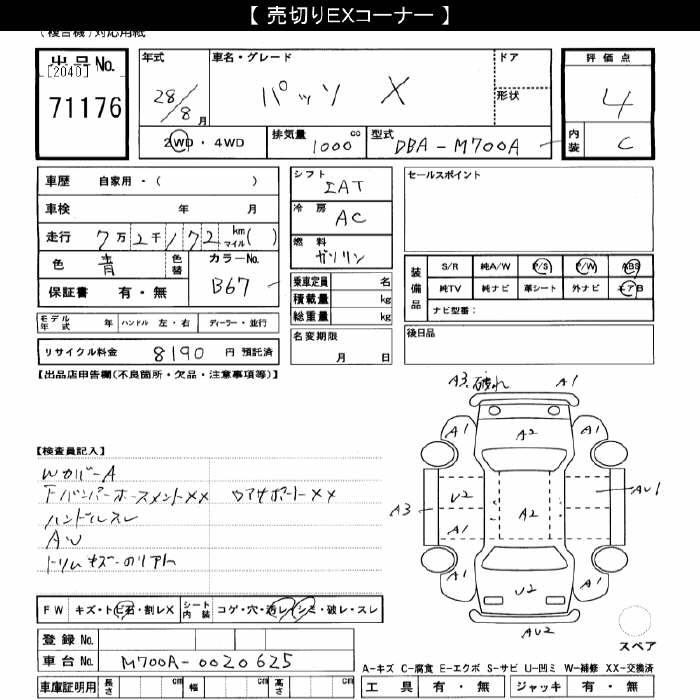 【 売切りEXコーナー 】
(複合機)対応用紙
出品No.
[2040]
71176
年式
28/8月
車名・グレード
パッソ X
ドア
形状
評価点
4
内装
C
2WD・4WD
排気量
1000 cc
型式
DBA-M700A
車歴 自家用・( )
車検 年 月
走行 7万2千172 km マイル( )
色 青 色替
カラーNo.
B67
保証書 有・無
シフト
IAT
冷房
AC
燃料
ガソリン
乗車定員 名
積載量 kg
総重量 kg
名変期限
月 日
セールスポイント
装備品
S/R 純A/W P/S P/W ABS
純TV 純ナビ 革シート 外ナビ エアB
ナビ型番:
後日品
モデル年式 年 ハンドル 左・右 ディーラー・並行
リサイクル料金 8190 円 預託済
【出品店申告欄(不良箇所・欠品・注意事項等)】
【検査員記入】
Wカバー A
FバンパーホースメントXX コアサポートXX
ハンドルスレ
AW
トリムキズ
A3 破れ A1
A1 A2 A1
A3 U2 A2 AU1
A1
A1 U2 A1
AU2
スペア
FW キズ・トビ石・割レX シート内装 コゲ・穴・汚レ・シミ・破レ・スレ
登録No.
車台No. M700A-0020625
車庫証明用 長さ cm 幅 cm 高さ cm
A-キズ C-腐食 E-エクボ S-サビ U-凹ミ W-補修 XX-交換済
工具 有・無 ジャッキ 有・無